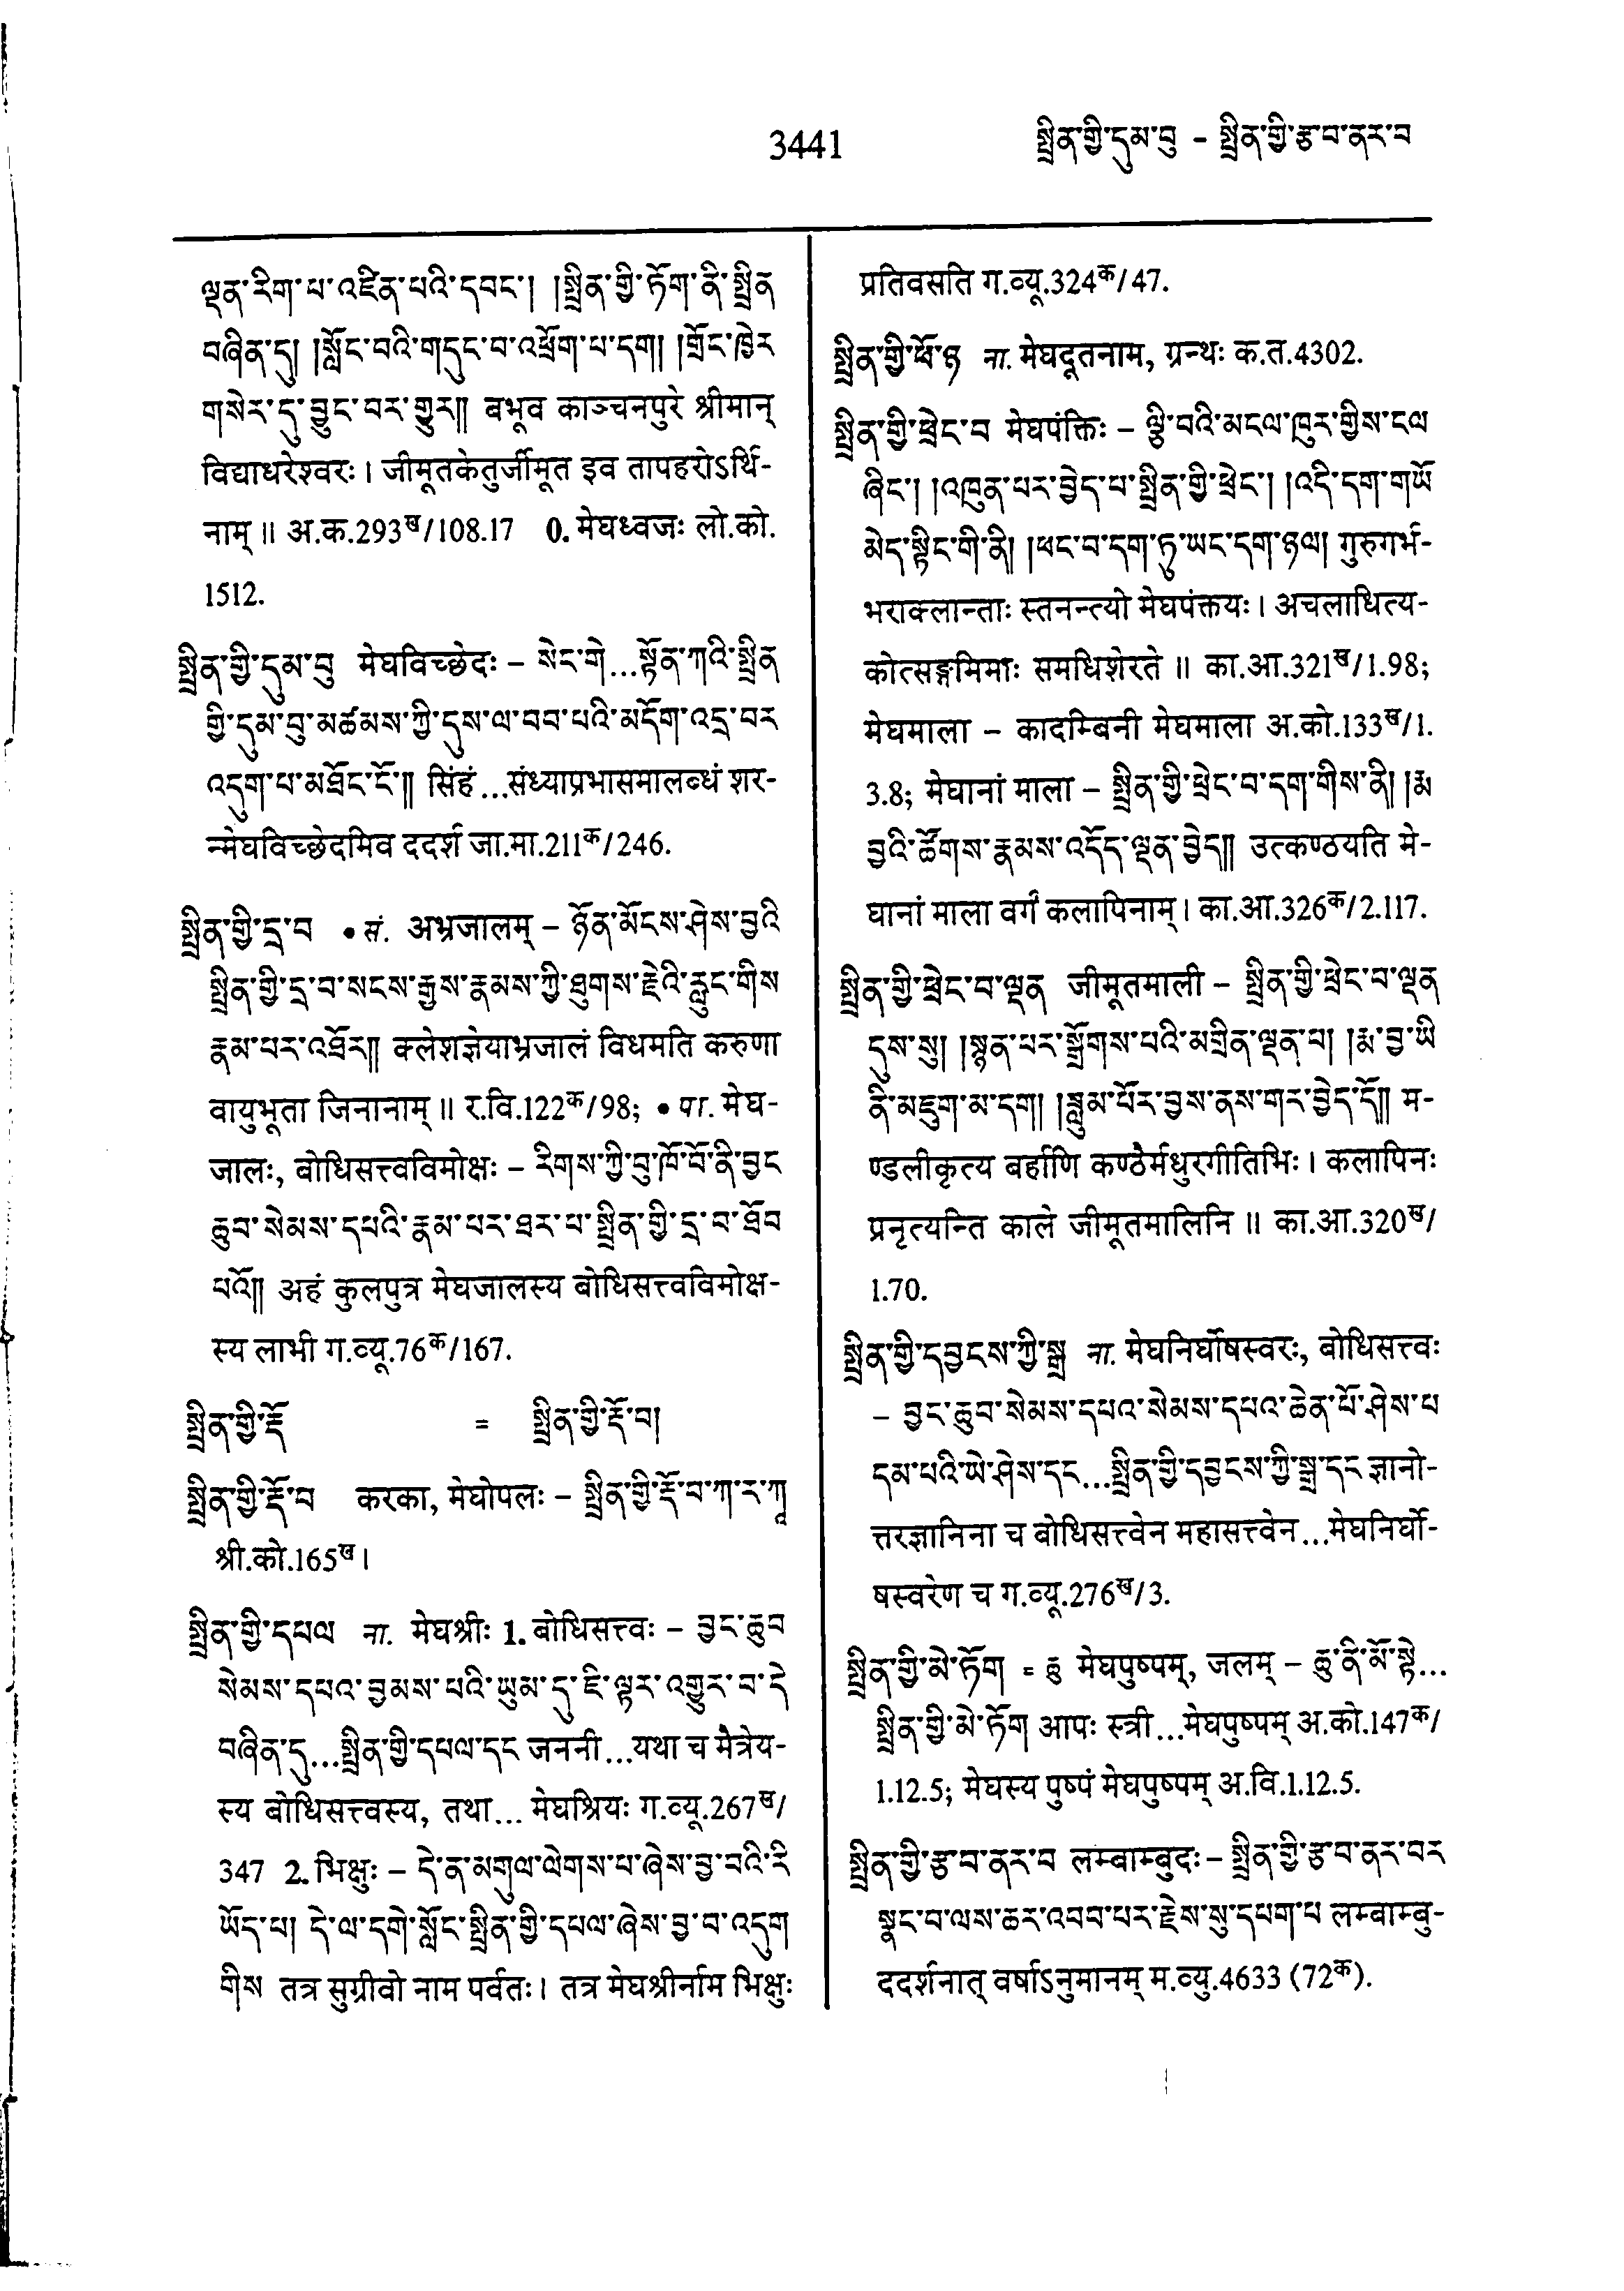 3441
སྤྲིན་གྱི་དུམ་བུ – སྤྲིན་གྱི་རྩ་བ་ནར་བ
ལྡན་རིག་པ་འཛིན་པའི་དབང་། །སྤྲིན་གྱི་ཏོག་ནི་སྤྲིན
བཞིན་དུ། །སློང་བའི་གདུང་བ་འཕྲོག་པ་དག། །གྲོང་ཁྱེར
གསེར་དུ་བྱུང་བར་གྱུར།། बभूव काञ्चनपुरे श्रीमान्
विद्याधरेश्वरः। जीमूतकेतुर्जीमूत इव तापहरोऽर्थि-
नाम्॥ अ.क.293ख/108.17 0. मेघध्वजः लो.को.
1512.
སྤྲིན་གྱི་དུམ་བུ मेघविच्छेदः – སེང་གེ...སྟོན་ཀའི་སྤྲིན
གྱི་དུམ་བུ་མཚམས་ཀྱི་དུས་ལ་བབ་པའི་མདོག་འདྲ་བར
འདུག་པ་མཐོང་ངོ་།། सिंहं...संध्याप्रभासमालब्धं शर-
न्मेघविच्छेदमिव ददर्श जा.मा.211क/246.
སྤྲིན་གྱི་དྲ་བ • सं. अभ्रजालम् – ཉོན་མོངས་ཤེས་བྱའི
སྤྲིན་གྱི་དྲ་བ་སངས་རྒྱས་རྣམས་ཀྱི་ཐུགས་རྗེའི་རླུང་གིས
རྣམ་པར་འཐོར།། क्लेशज्ञेयाभ्रजालं विधमति करुणा
वायुभूता जिनानाम्॥ र.वि.122क/98; • पा. मेघ-
जालः, बोधिसत्त्वविमोक्षः – རིགས་ཀྱི་བུ་ཁོ་བོ་ནི་བྱང
ཆུབ་སེམས་དཔའི་རྣམ་པར་ཐར་པ་སྤྲིན་གྱི་དྲ་བ་ཐོབ
པའོ།། अहं कुलपुत्र मेघजालस्य बोधिसत्त्वविमोक्ष-
स्य लाभी ग.व्यू.76क/167.
སྤྲིན་གྱི་རྡོ = སྤྲིན་གྱི་རྡོ་བ།
སྤྲིན་གྱི་རྡོ་བ करका, मेघोपलः – སྤྲིན་གྱི་རྡོ་བ་ཀ་ར་ཀཱ
श्री.को.165ख।
སྤྲིན་གྱི་དཔལ ना. मेघश्रीः 1. बोधिसत्त्वः – བྱང་ཆུབ
སེམས་དཔའ་བྱམས་པའི་ཡུམ་དུ་ཇི་ལྟར་འགྱུར་བ་དེ
བཞིན་དུ...སྤྲིན་གྱི་དཔལ་དང जननी...यथा च मैत्रेय-
स्य बोधिसत्त्वस्य, तथा... मेघश्रियः ग.व्यू.267ख/
347 2. भिक्षुः – དེ་ན་མགུལ་ལེགས་པ་ཞེས་བྱ་བའི་རི
ཡོད་པ། དེ་ལ་དགེ་སློང་སྤྲིན་གྱི་དཔལ་ཞེས་བྱ་བ་འདུག
གིས तत्र सुग्रीवो नाम पर्वतः। तत्र मेघश्रीर्नाम भिक्षुः
प्रतिवसति ग.व्यू.324क/47.
སྤྲིན་གྱི་ཕོ་ཉ ना. मेघदूतनाम, ग्रन्थः क.त.4302.
སྤྲིན་གྱི་ཕྲེང་བ मेघपंक्तिः – ལྕི་བའི་མངལ་ཁུར་གྱིས་ངལ
ཞིང་། །འཁུན་པར་བྱེད་པ་སྤྲིན་གྱི་ཕྲེང་། །འདི་དག་གཡོ
མེད་སྟེང་གི་ནི། །ཕང་བ་དག་ཏུ་ཡང་དག་ཉལ། गुरुगर्भ-
भराक्लान्ताः स्तनन्त्यो मेघपंक्तयः। अचलाधित्य-
कोत्सङ्गमिमाः समधिशेरते॥ का.आ.321ख/1.98;
मेघमाला – कादम्बिनी मेघमाला अ.को.133ख/1.
3.8; मेघानां माला – སྤྲིན་གྱི་ཕྲེང་བ་དག་གིས་ནི། །རྨ
བྱའི་ཚོགས་རྣམས་འདོད་ལྡན་བྱེད།། उत्कण्ठयति मे-
घानां माला वर्गं कलापिनाम्। का.आ.326क/2.117.
སྤྲིན་གྱི་ཕྲེང་བ་ལྡན जीमूतमाली – སྤྲིན་གྱི་ཕྲེང་བ་ལྡན
དུས་སུ། །སྙན་པར་སྒྲོགས་པའི་མགྲིན་ལྡན་པ། །རྨ་བྱ་ཡི
ནི་མཇུག་མ་དག། །ཟླུམ་པོར་བྱས་ནས་གར་བྱེད་དོ།། म-
ण्डलीकृत्य बर्हाणि कण्ठैर्मधुरगीतिभिः। कलापिनः
प्रनृत्यन्ति काले जीमूतमालिनि॥ का.आ.320ख/
1.70.
སྤྲིན་གྱི་དབྱངས་ཀྱི་སྒྲ ना. मेघनिर्घोषस्वरः, बोधिसत्त्वः
– བྱང་ཆུབ་སེམས་དཔའ་སེམས་དཔའ་ཆེན་པོ་ཤེས་པ
དམ་པའི་ཡེ་ཤེས་དང...སྤྲིན་གྱི་དབྱངས་ཀྱི་སྒྲ་དང ज्ञानो-
त्तरज्ञानिना च बोधिसत्त्वेन महासत्त्वेन...मेघनिर्घो-
षस्वरेण च ग.व्यू.276ख/3.
སྤྲིན་གྱི་མེ་ཏོག = ཆུ मेघपुष्पम्, जलम् – ཆུ་ནི་མོ་སྟེ...
སྤྲིན་གྱི་མེ་ཏོག आपः स्त्री...मेघपुष्पम् अ.को.147क/
1.12.5; मेघस्य पुष्पं मेघपुष्पम् अ.वि.1.12.5.
སྤྲིན་གྱི་རྩ་བ་ནར་བ लम्बाम्बुदः – སྤྲིན་གྱི་རྩ་བ་ནར་བར
སྣང་བ་ལས་ཆར་འབབ་པར་རྗེས་སུ་དཔག་པ लम्बाम्बु-
ददर्शनात् वर्षाऽनुमानम् म.व्यु.4633 (72क).